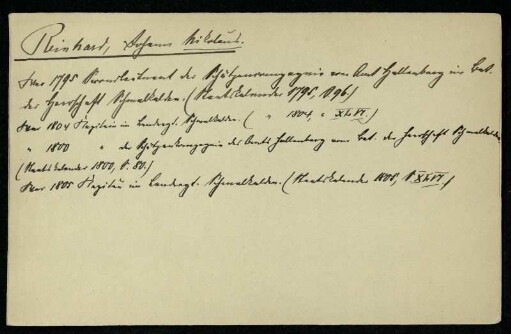 Reinhard, Johann Nikolaus.
War 1795 Premierleutnant der Schützenkompagnie vom Amt Hallenberg im Bat.
der Herrschaft Schmalkalden. (Staatskalender 1795, S. 96.)
War 1804 Kapitän im Landregt. Schmalkalden. ( " 1804, " XLVI.)
" 1800 " der Schützenkompagnie des Amts Hallenberg vom Bat. der Herrschaft Schmalkalden
(Staatskalender 1800, S. 80.)
War 1805 Kapitän im Landregt. Schmalkalden. (Staatskalender 1805, S. XLVI.)